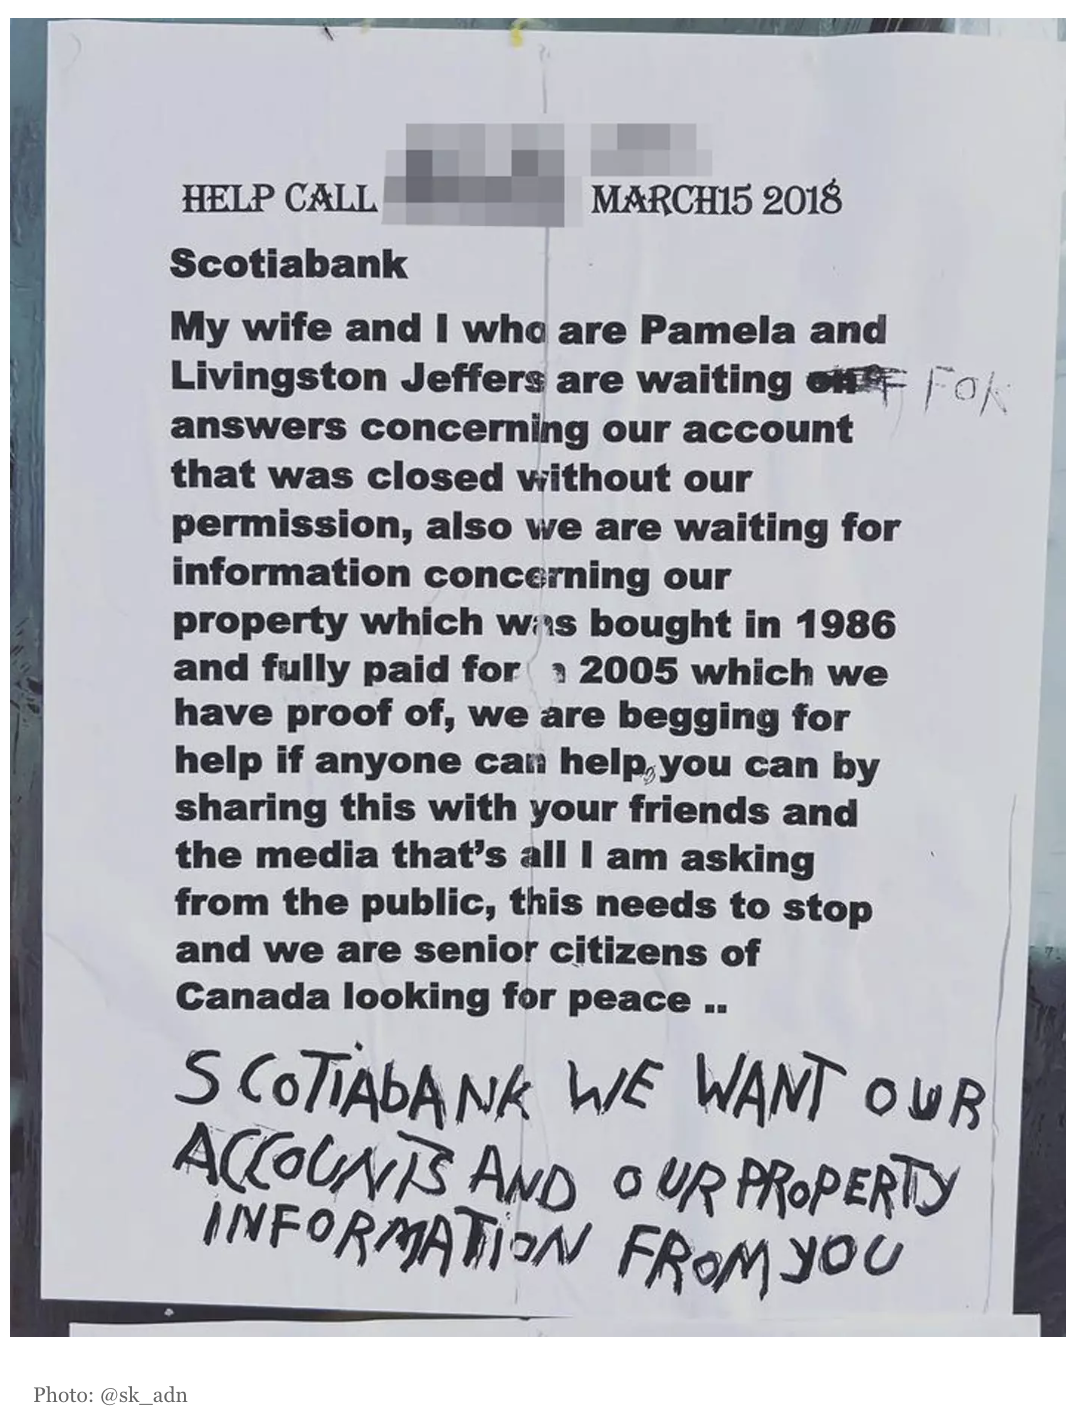 HELP CALL MARCH15 2018
Scotiabank
My wife and I who are Pamela and
Livingston Jeffers are waiting on FOR
answers concerning our account
that was closed without our
permission, also we are waiting for
information concerning our
property which was bought in 1986
and fully paid for 2005 which we
have proof of, we are begging for
help if anyone can help, you can by
sharing this with your friends and
the media that's all I am asking
from the public, this needs to stop
and we are senior citizens of
Canada looking for peace ..
SCOTIAbANK WE WANT OUR
ACCOUNTS AND OUR PROPERTY
INFORMATION FROM YOU
Photo: @sk_adn